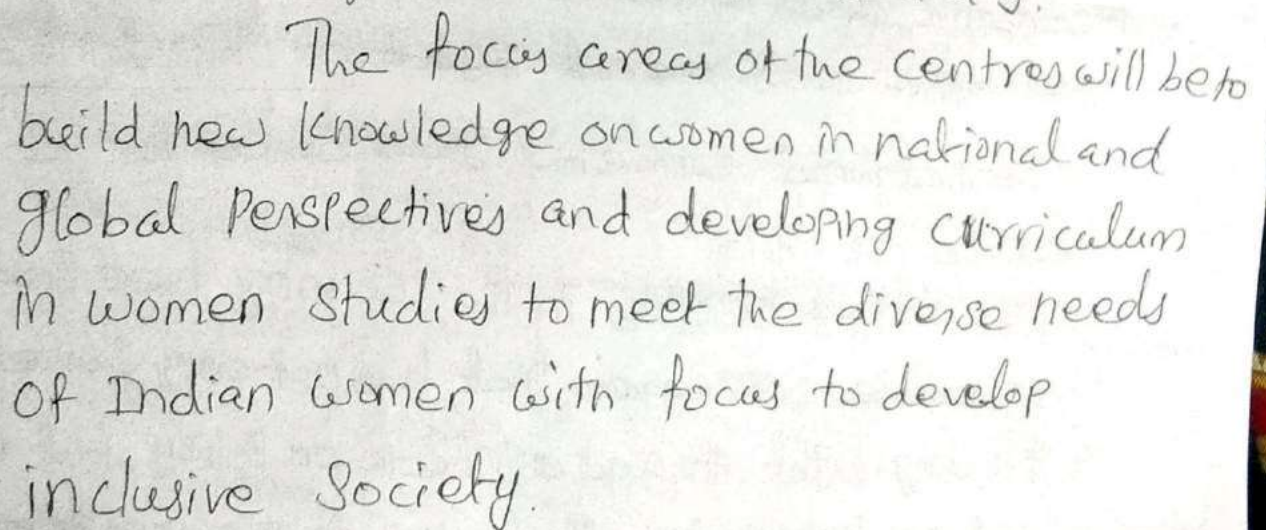 The focus areas of the centres will be to
build new knowledge on women in national and
global perspectives and developing curriculum
in women studies to meet the diverse needs
of Indian women with focus to develop
inclusive society.